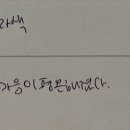 라색
마음이 평온해졌다.